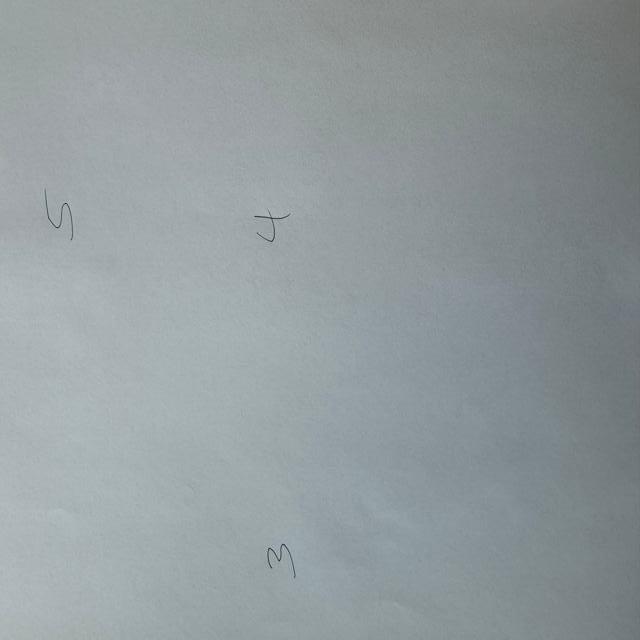 5 4
3